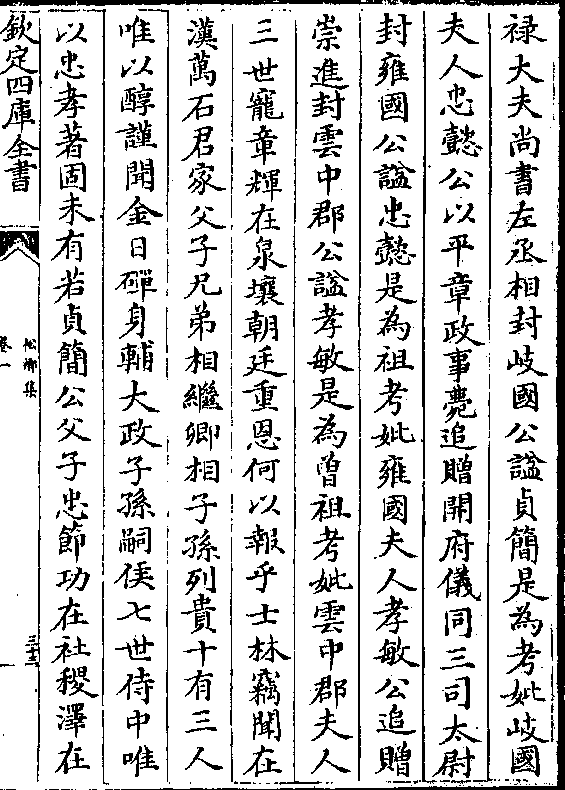 禄大夫尚書左丞相封岐國公諡貞簡是為考妣岐國
夫人忠懿公以平章政事薨追贈開府儀同三司太尉
封雍國公諡忠懿是為祖考妣雍國夫人孝敏公追贈
崇進封雲中郡公諡孝敏是為曾祖考妣雲中郡夫人
三世寵章輝在泉壤朝廷重恩何以報乎士林竊聞在
漢萬石君家父子兄弟相繼卿相子孫列貴十有三人
唯以醇謹聞金日磾身輔大政子孫嗣侯七世侍中唯
以忠孝著固未有若貞簡公父子忠節功在社稷澤在
欽定四庫全書
松鄉集
卷一
三十三